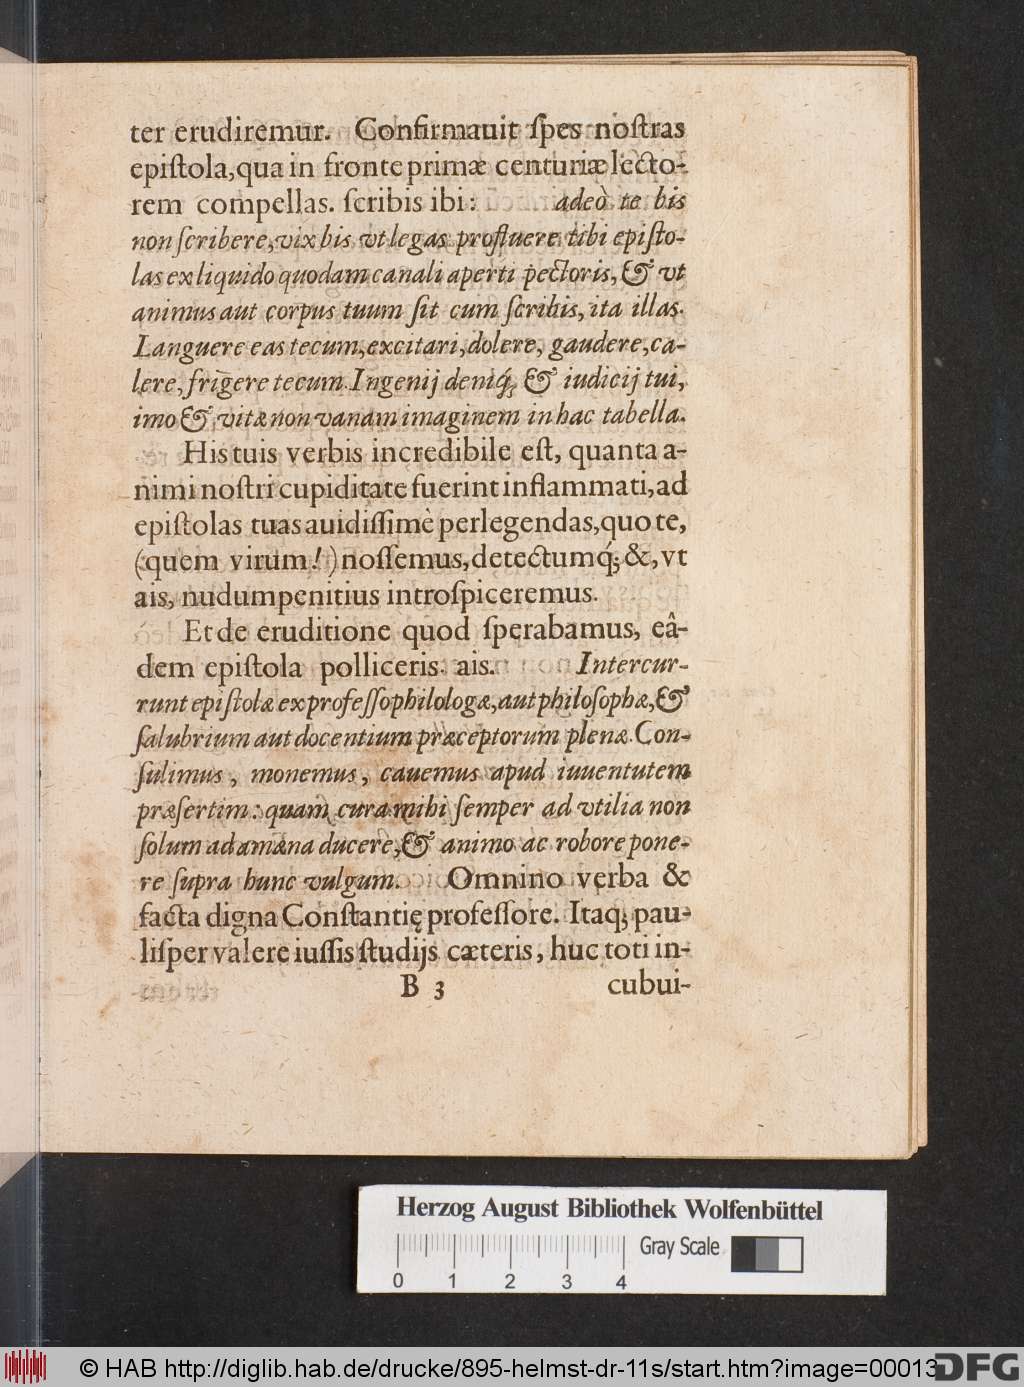 ter erudiremur. Confirmauit ſpes noſtras
epiſtola,qua in fronte primæ centuriæ lecto-
rem compellas. ſcribis ibi: adeò te bis
non ſcribere,vix bis vt legas profluere tibi epiſto-
las ex liquido quodam canali aperti pectoris, & vt
animus aut corpus tuum ſit cum ſcribis, ita illas.
Languere eas tecum,excitari,dolere, gaudere,ca-
lere,frigere tecum. Ingenij deniq́; & iudicij tui,
imo & vitæ non vanam imaginem in hac tabella.
His tuis verbis incredibile eſt, quanta a-
nimi noſtri cupiditate fuerint inflammati,ad
epiſtolas tuas auidiſſimè perlegendas,quo te,
(quem virum!) noſſemus,detectumq́; &, vt
ais, nudum penitius introſpiceremus.
Et de eruditione quod ſperabamus, eâ-
dem epiſtola polliceris. ais. Intercur-
runt epiſtolæ ex profeſſo philologæ,aut philoſophæ,&
ſalubrium aut docentium præceptorum plenæ. Con-
ſulimus, monemus, cauemus apud iuuentutem
præſertim: quam cura mihi ſemper ad vtilia non
ſolum ad amæna ducere,& animo ac robore pone-
re ſupra hunc vulgum. Omnino verba &
facta digna Conſtantię profeſſore. Itaq; pau-
liſper valere iuſſis ſtudijs cæteris, huc toti in-
B 3 cubui-
Herzog August Bibliothek Wolfenbüttel
Gray Scale
0 1 2 3 4
© HAB http://diglib.hab.de/drucke/895-helmst-dr-11s/start.htm?image=00013
DFG